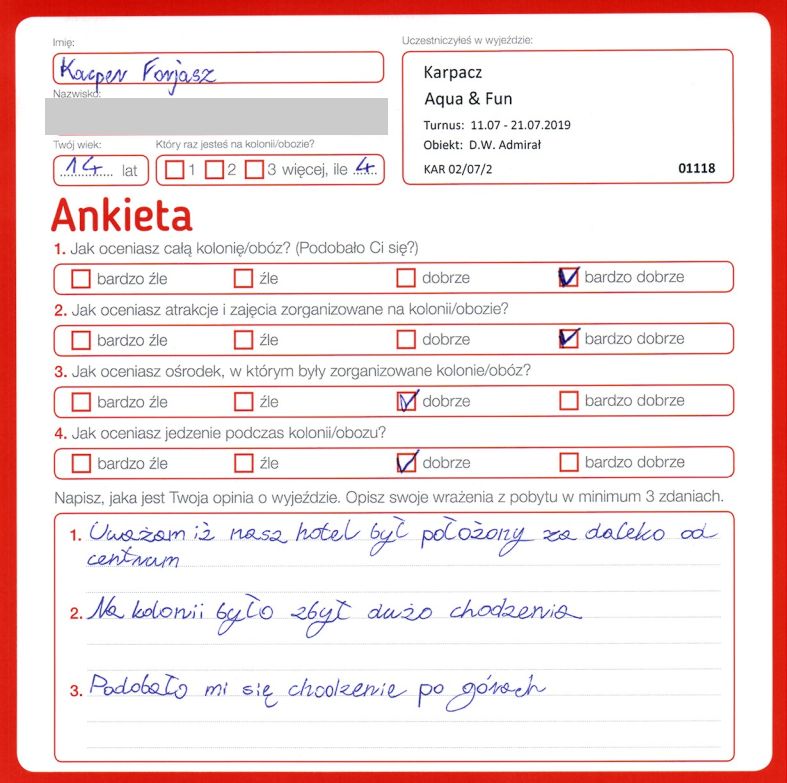 Imię:
Kacper Forjasz
Nazwisko:
Twój wiek:
14 lat
Który raz jesteś na kolonii/obozie?
1 2 3 więcej, ile 4
Uczestniczyłeś w wyjeździe:
Karpacz
Aqua & Fun
Turnus: 11.07 - 21.07.2019
Obiekt: D.W. Admirał
KAR 02/07/2 01118
Ankieta
1. Jak oceniasz całą kolonię/obóz? (Podobało Ci się?)
bardzo źle źle dobrze bardzo dobrze
2. Jak oceniasz atrakcje i zajęcia zorganizowane na kolonii/obozie?
bardzo źle źle dobrze bardzo dobrze
3. Jak oceniasz ośrodek, w którym były zorganizowane kolonie/obóz?
bardzo źle źle dobrze bardzo dobrze
4. Jak oceniasz jedzenie podczas kolonii/obozu?
bardzo źle źle dobrze bardzo dobrze
Napisz, jaka jest Twoja opinia o wyjeździe. Opisz swoje wrażenia z pobytu w minimum 3 zdaniach.
1. Uważam iż nasz hotel był położony za daleko od
centrum
2. Na kolonii było zbyt dużo chodzenia
3. Podobało mi się chodzenie po górach